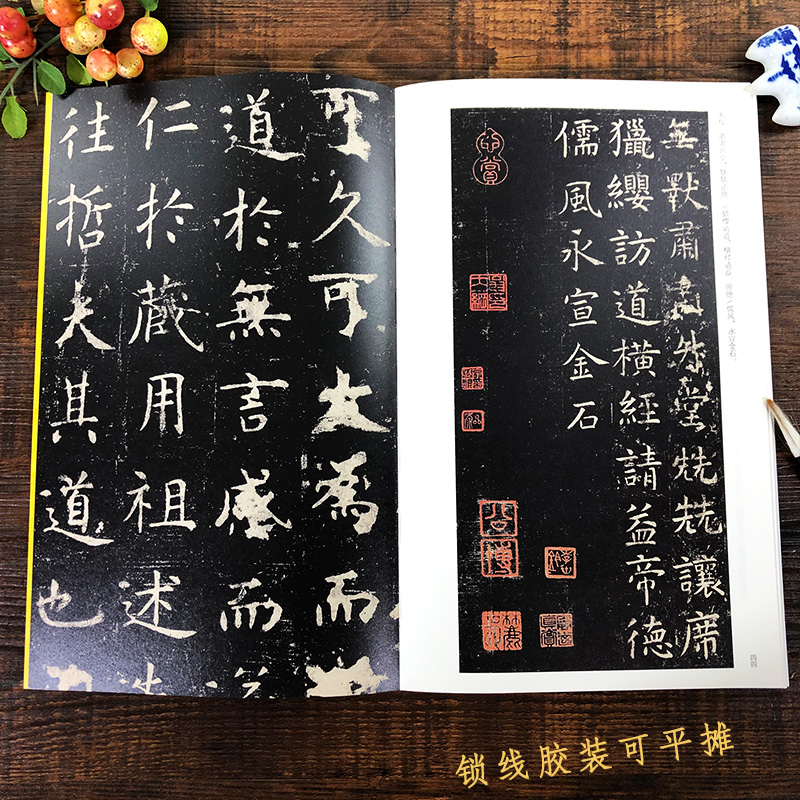 無斁肅肅升堂兟兟讓席
獵纓訪道橫經請益帝德
儒風永宣金石
四四
可久可大為而
道於無言感而
仁於藏用祖述
往哲夫其道也
锁线胶装可平摊